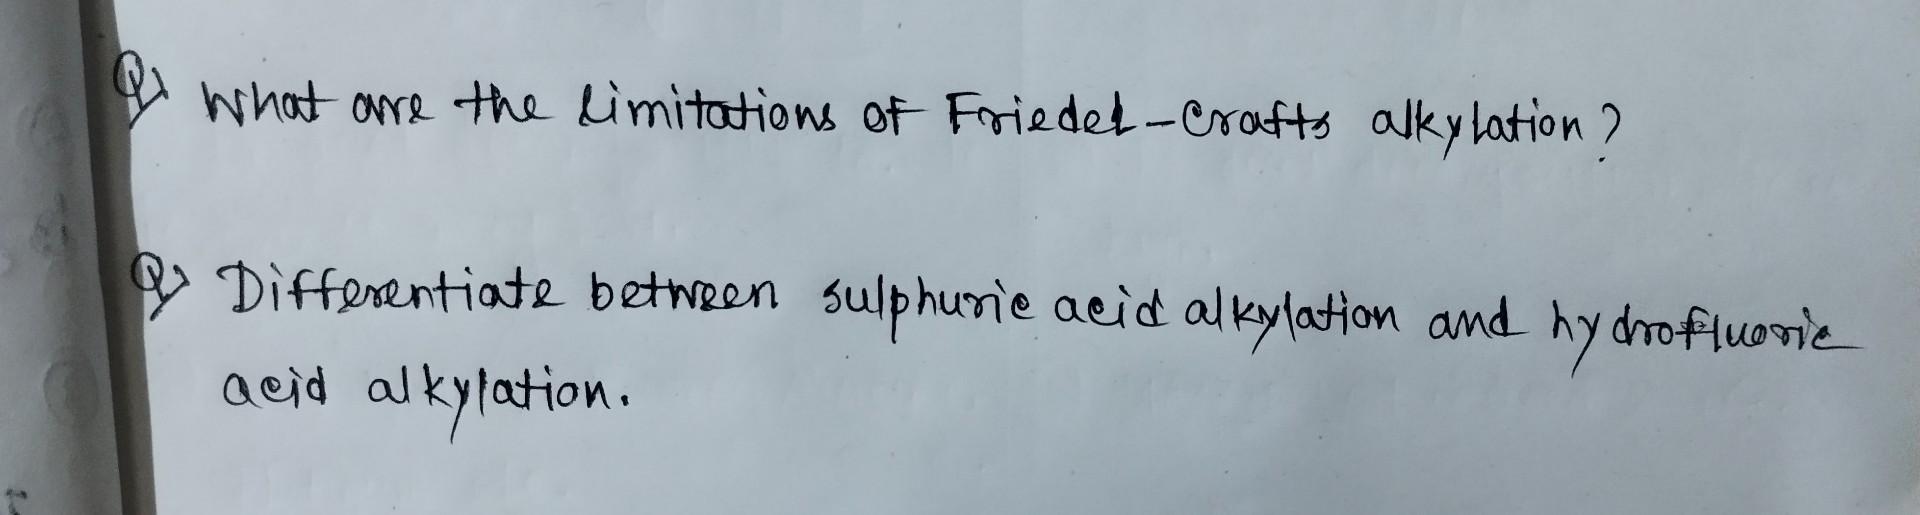 Q> What are the limitations of Friedel-Crafts alkylation?
Q> Differentiate between sulphuric acid alkylation and hydrofluoric
acid alkylation.